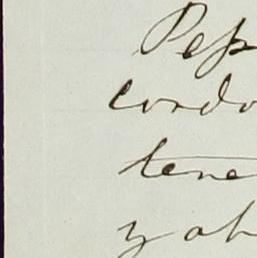 Pep
cordo
tene
y ah